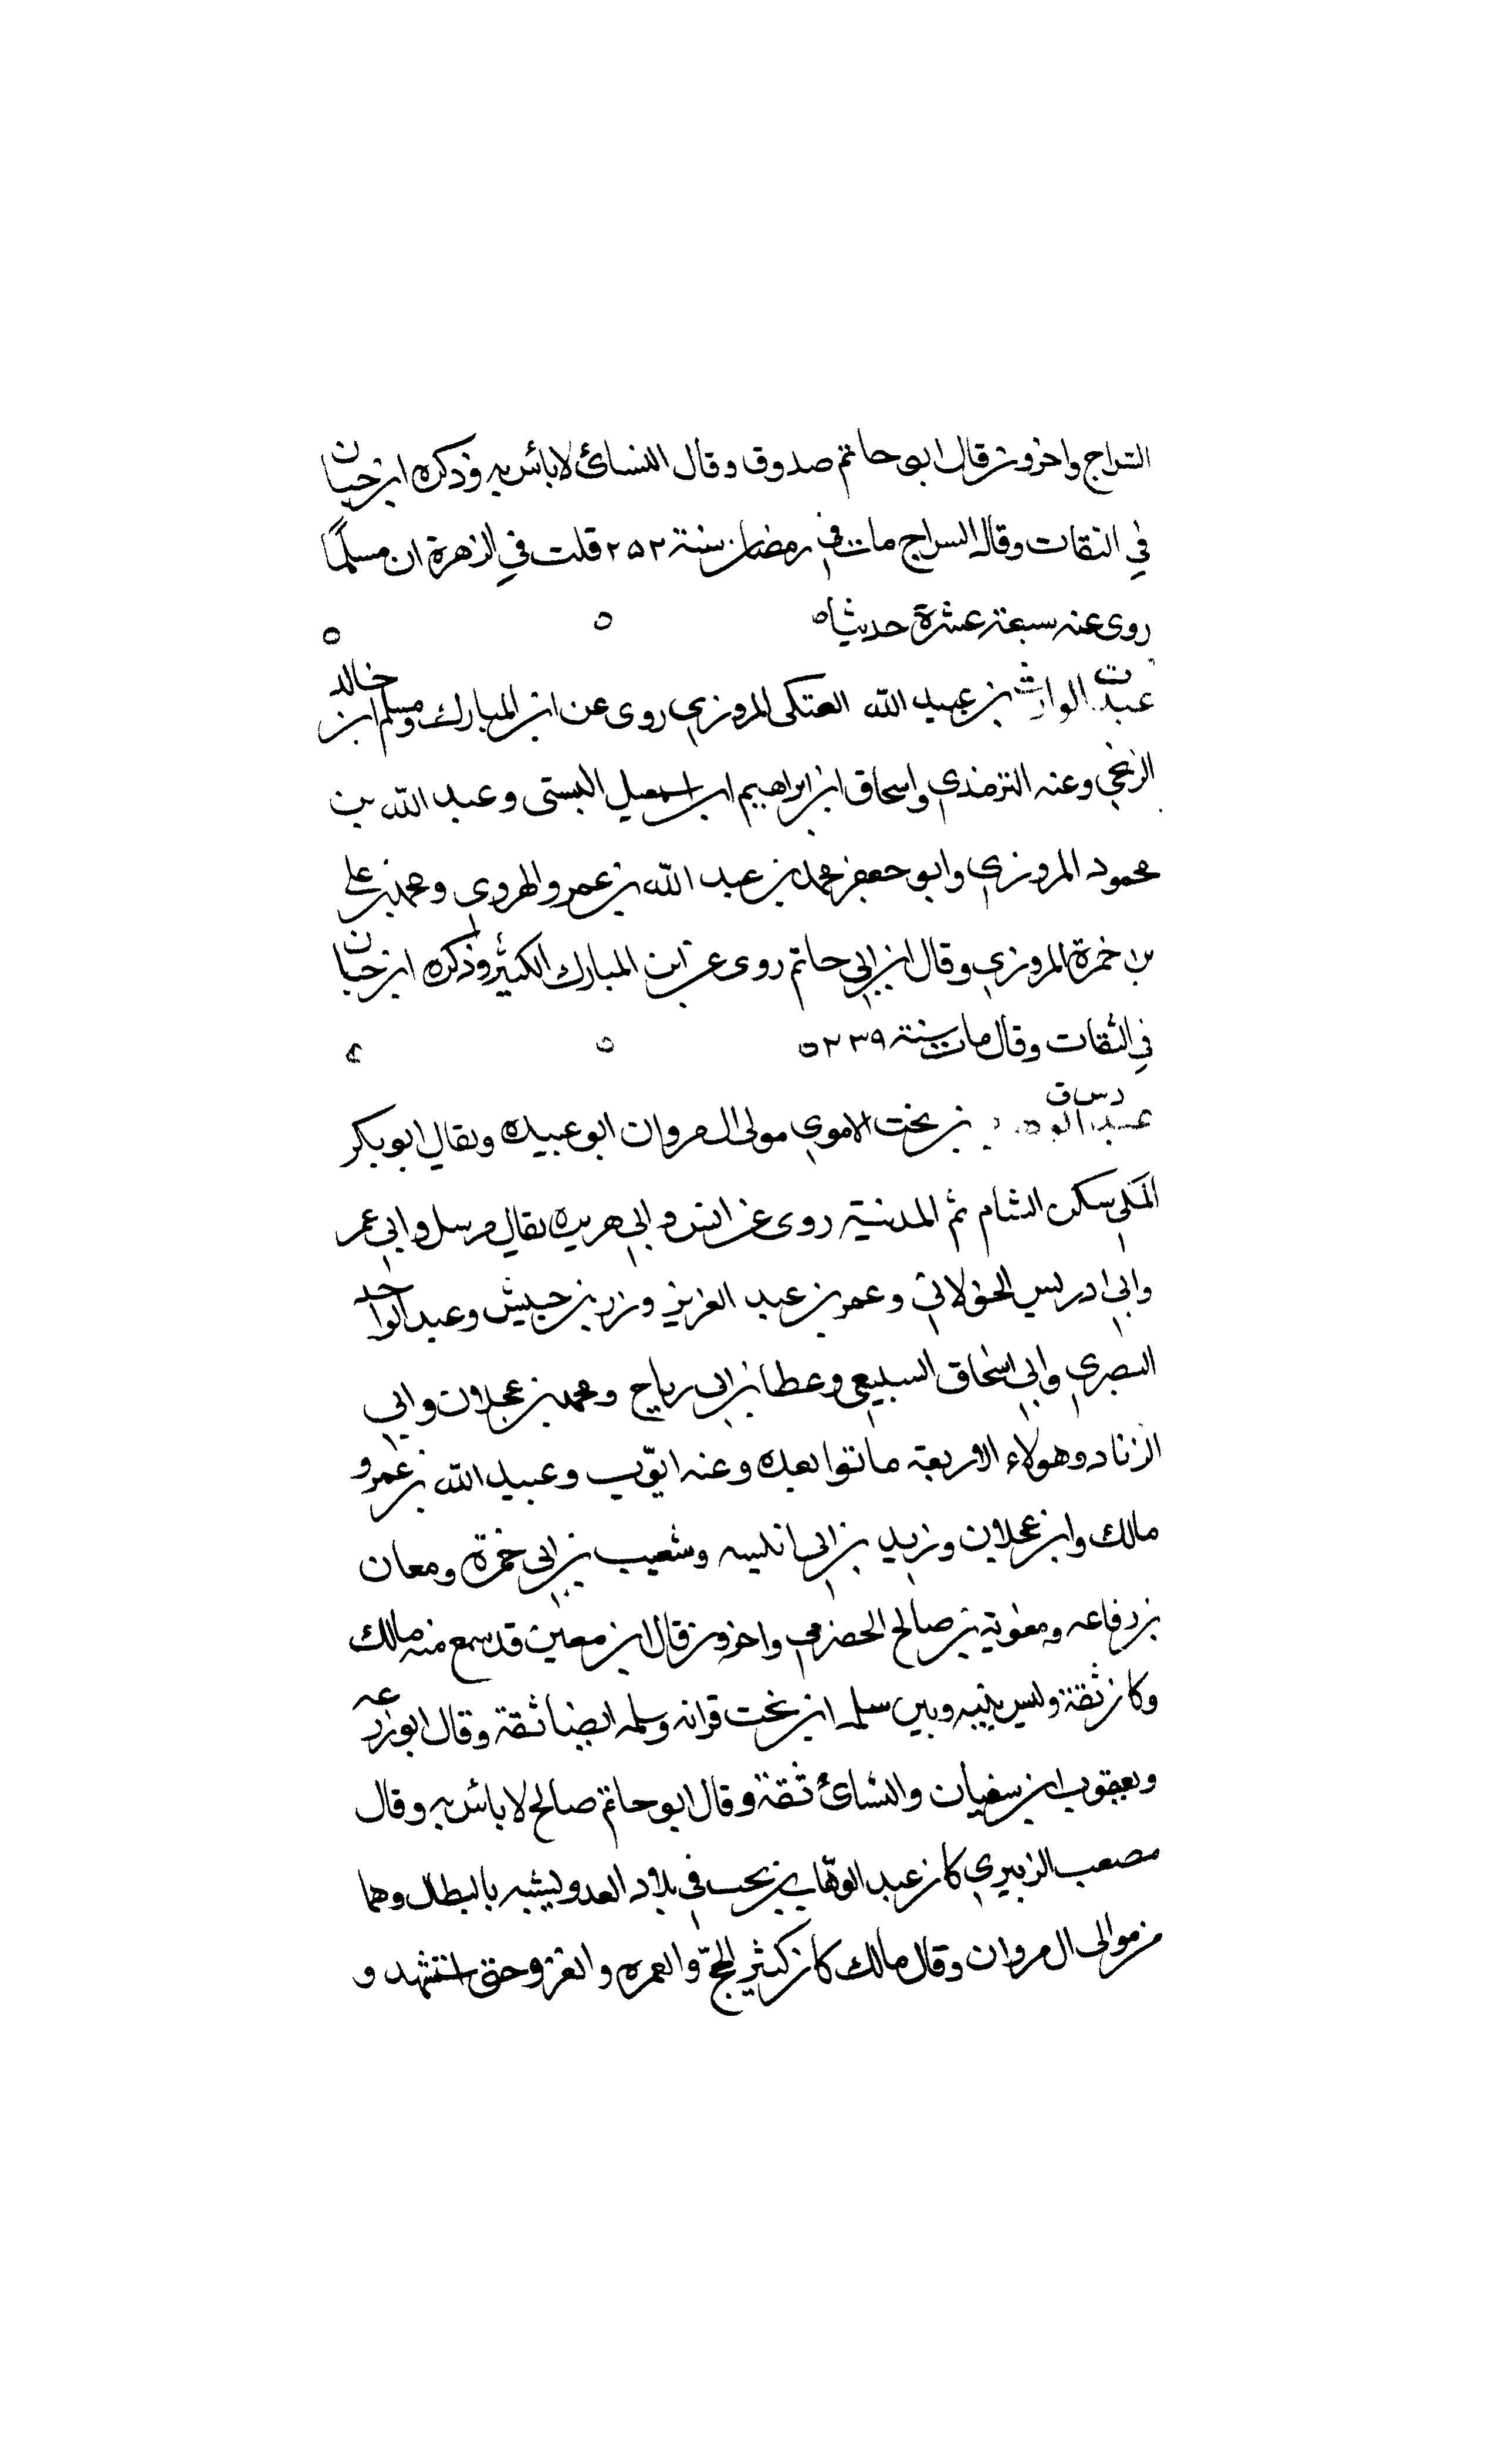 السراج واخرون قال ابو حاتم صدوق وقال النسائ لاباس به وذكره ابن حبان
في الثقات وقال السراج مات في رمضان سنة ٢٥٢ قلت في الزهرة ان مسلمًا
روى عنه سبعة عشرة حديثا ه
ت
عبد الوارث بن عبيد الله العتكى المروزي روى عن ابن المبارك ومسلم ابن خالد
الزنجي وعنه الترمذي واسحاق ابن ابراهيم ابن اسمعيل البستى وعبد الله بن
محمود المروزي وابو جعفر محمد بن عبد الله بن عمرو الهروى ومحمد بن على
بن حمزة المروزي وقال ابن ابي حاتم روى عن ابن المبارك الكثير وذكره ابن حبان
في الثقات وقال مات سنة ٢٣٩ ه
د س ق
عبد الوهاب بن بخت الاموي مولى ال مروان ابو عبيده ويقال ابو بكر
المكي سكن الشام ثم المدينة روى عن انس وابي هريره يقال مرسل وابي عمر
وابي ادريس الخولاني وعمر بن عبد العزيز وزر بن حبيش وعبد الواحد
البصري وابي اسحاق السبيعي وعطا بن ابى رباح ومحمد بن عجلان وابي
الزناد وهولاء الاربعة ماتوا بعده وعنه ايّوب وعبيد الله بن عمرو
مالك وابن عجلان وزيد بن ابى انيسه وشعيب بن ابى حمزة ومعان
بن رفاعه ومعوية بن صالح الحضرمي واخرون قال ابن معين قد سمع منه مالك
وكان ثقة وليس بينه وبين سلمه ابن بخت قرابه وسلمه ايضا ثقة وقال ابو زرعه
ويعقوب ابن سفيان والنسائ ثقة وقال ابو حاتم صالح لاباس به وقال
مصعب الزبيري كان عبد الوهّاب بن بخت في بلاد العدو يشبه بالبطال وهما
من موالى ال مروان وقال مالك كان كثير الحجّ والعمره والغزو حتى استشهد و